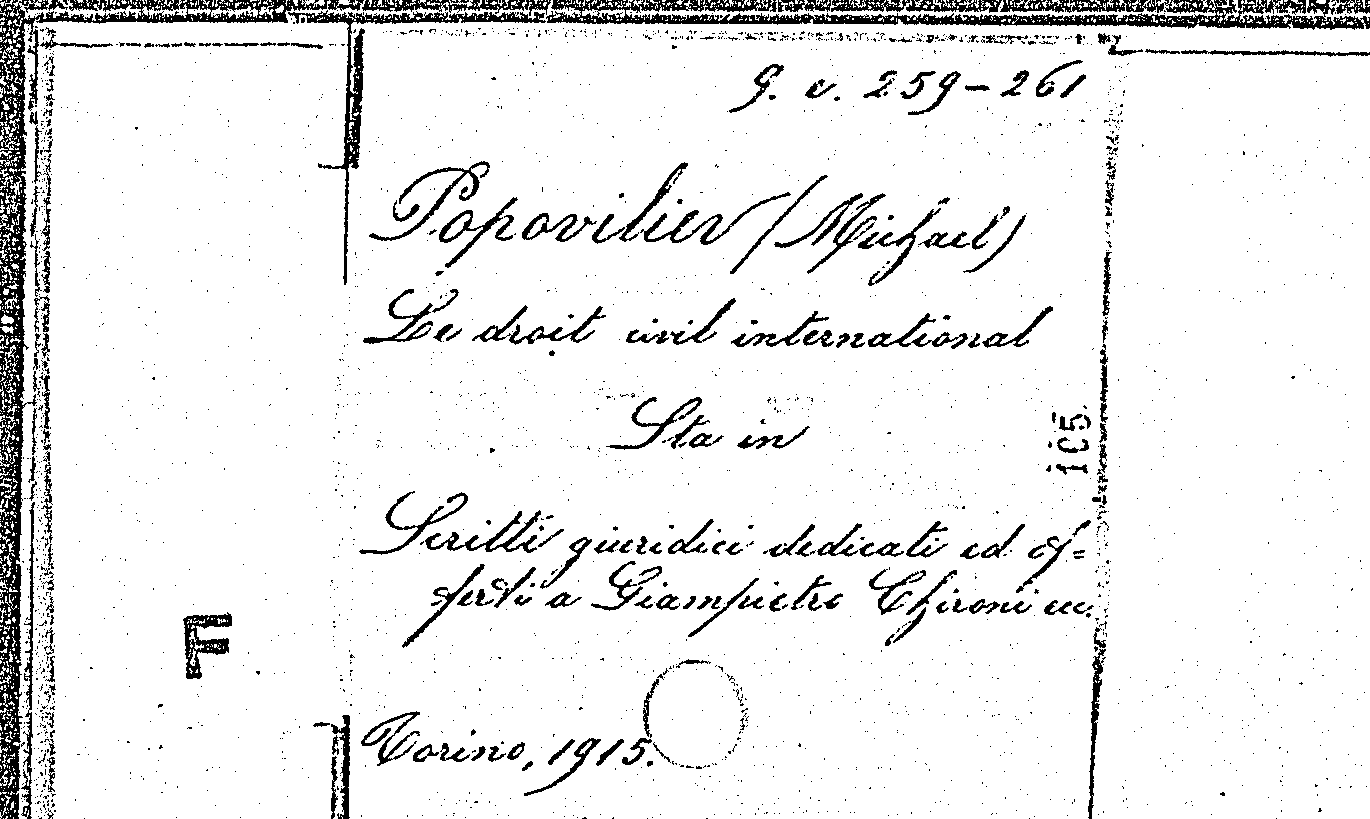 g. e. 259-261
Popoviliev (Michael)
Le droit civil international
Sta in
105
Scritti giuridici dedicati ed of=
ferti a Giampietro Chironi ec.
F
Torino, 1915.